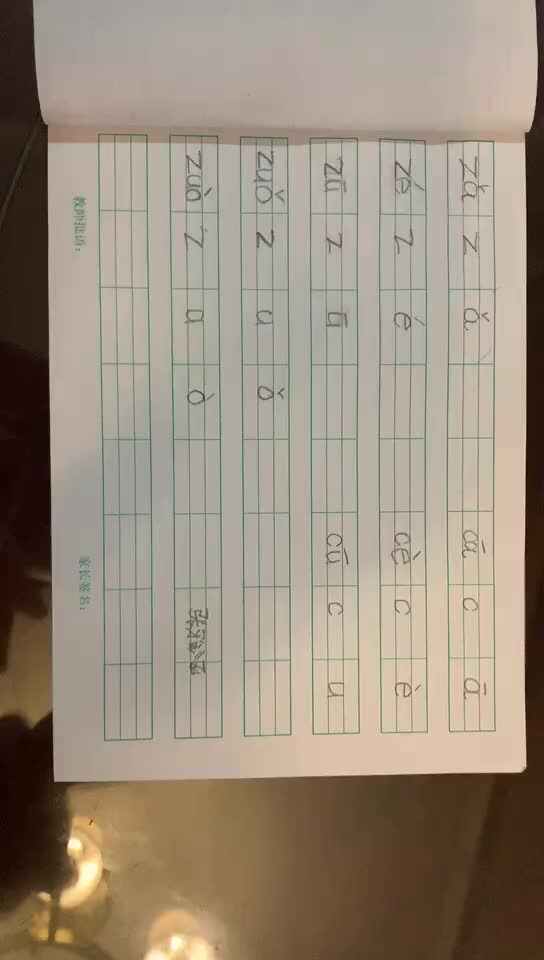 zǎ z ǎ cā c ā
zé z é cè c è
zū z ū cū c u
zuǒ z u ǒ
zuò z u ò
教师评语： 家长签名：